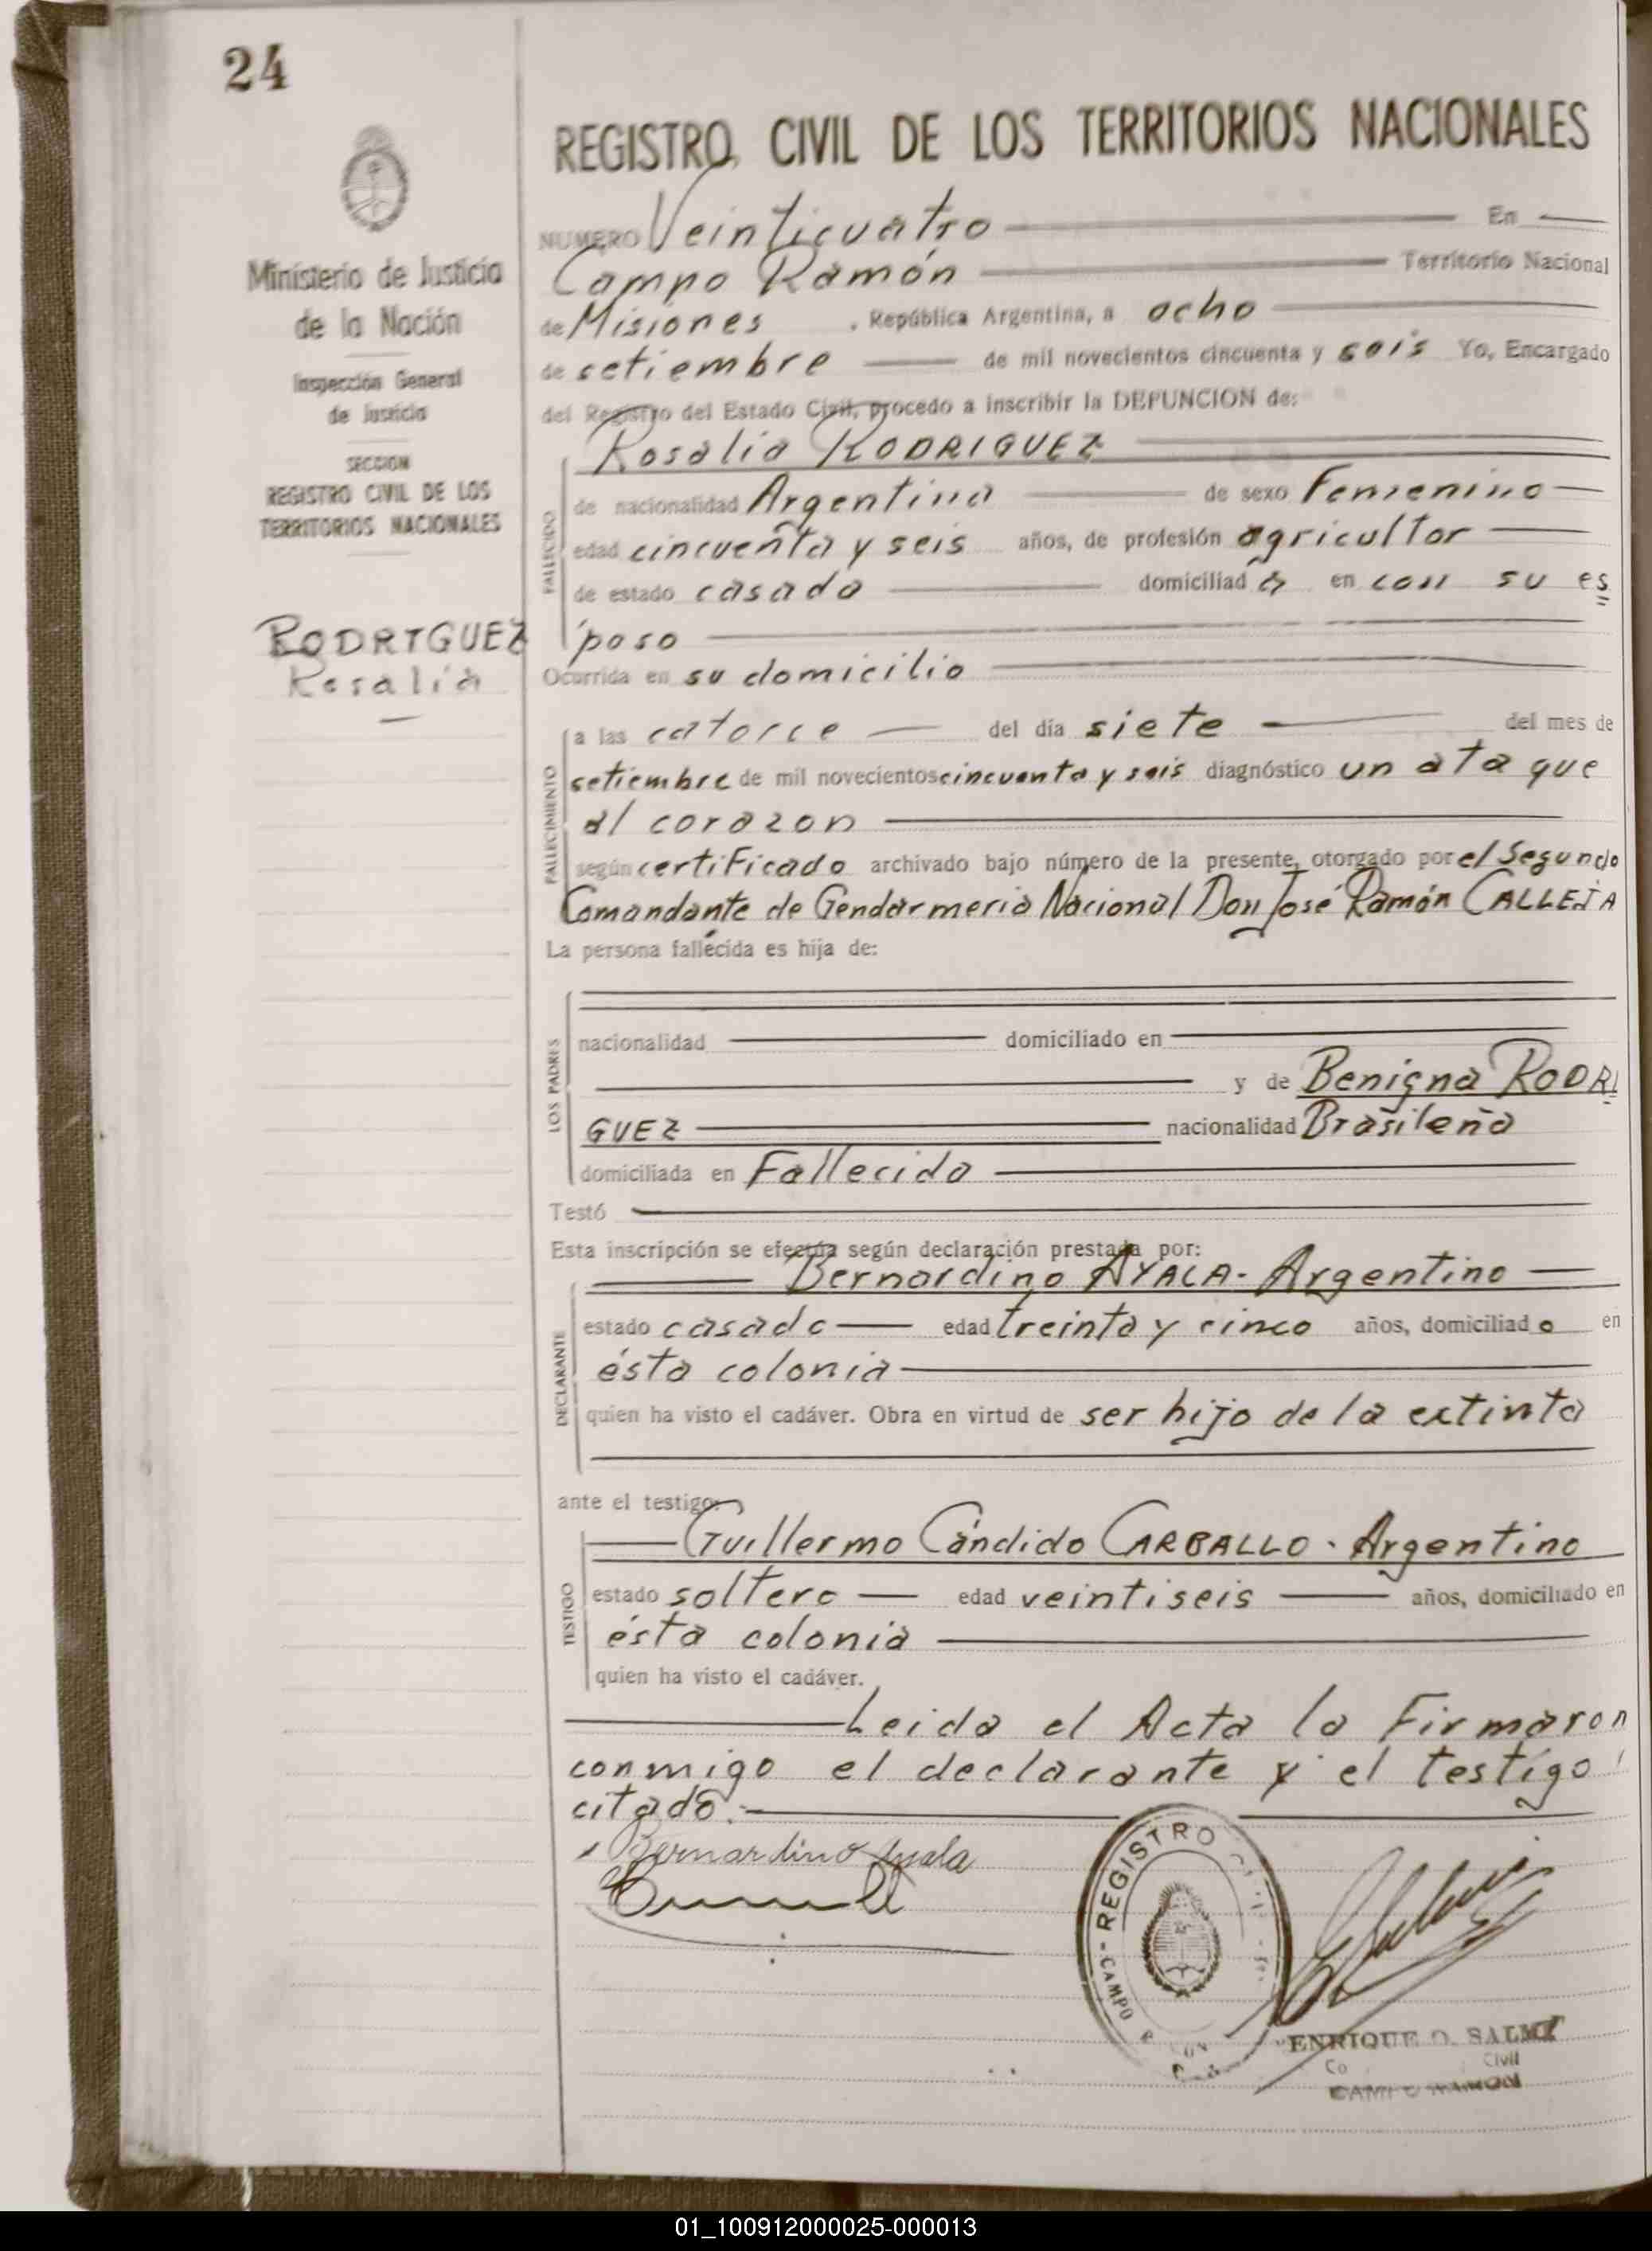 24
REGISTRO CIVIL DE LOS TERRITORIOS NACIONALES
Ministerio de Justicia
de la Nación
Inspección General
de Justicia
SECCION
REGISTRO CIVIL DE LOS
TERRITORIOS NACIONALES
RODRIGUEZ
Rosalia
NUMERO Veinticuatro En
Campo Ramón Territorio Nacional
de Misiones , República Argentina, a ocho
de setiembre de mil novecientos cincuenta y seis Yo, Encargado
del Registro del Estado Civil, procedo a inscribir la DEFUNCION de:
Rosalia RODRIGUEZ
FALLECIDO
de nacionalidad Argentina de sexo Femenino
edad cincuenta y seis años, de profesión agricultor
de estado casada domiciliad a en con su es
poso
Ocurrida en su domicilio
FALLECIMIENTO
a las catorce del día siete del mes de
setiembre de mil novecientos cincuenta y seis diagnóstico un ataque
al corazon
según certificado archivado bajo número de la presente, otorgado por el Segundo
Comandante de Gendarmeria Nacional Don José Ramón CALLEJA
La persona fallecida es hija de:
LOS PADRES
nacionalidad domiciliado en
y de Benigna RODRI
GUEZ nacionalidad Brasileña
domiciliada en Fallecida
Testó
Esta inscripción se efectúa según declaración prestada por:
Bernardino AYALA - Argentino
DECLARANTE
estado casado edad treinta y cinco años, domiciliad o en
ésta colonia
quien ha visto el cadáver. Obra en virtud de ser hijo de la extinta
ante el testigo:
Guillermo Cándido CARBALLO - Argentino
TESTIGO
estado soltero edad veintiseis años, domiciliado en
ésta colonia
quien ha visto el cadáver.
Leida el Acta la Firmaron
conmigo el declarante y el testigo
citado.-
Bernardino Ayala
REGISTRO
CAMPO
ENRIQUE O.
Civil
01_100912000025-000013